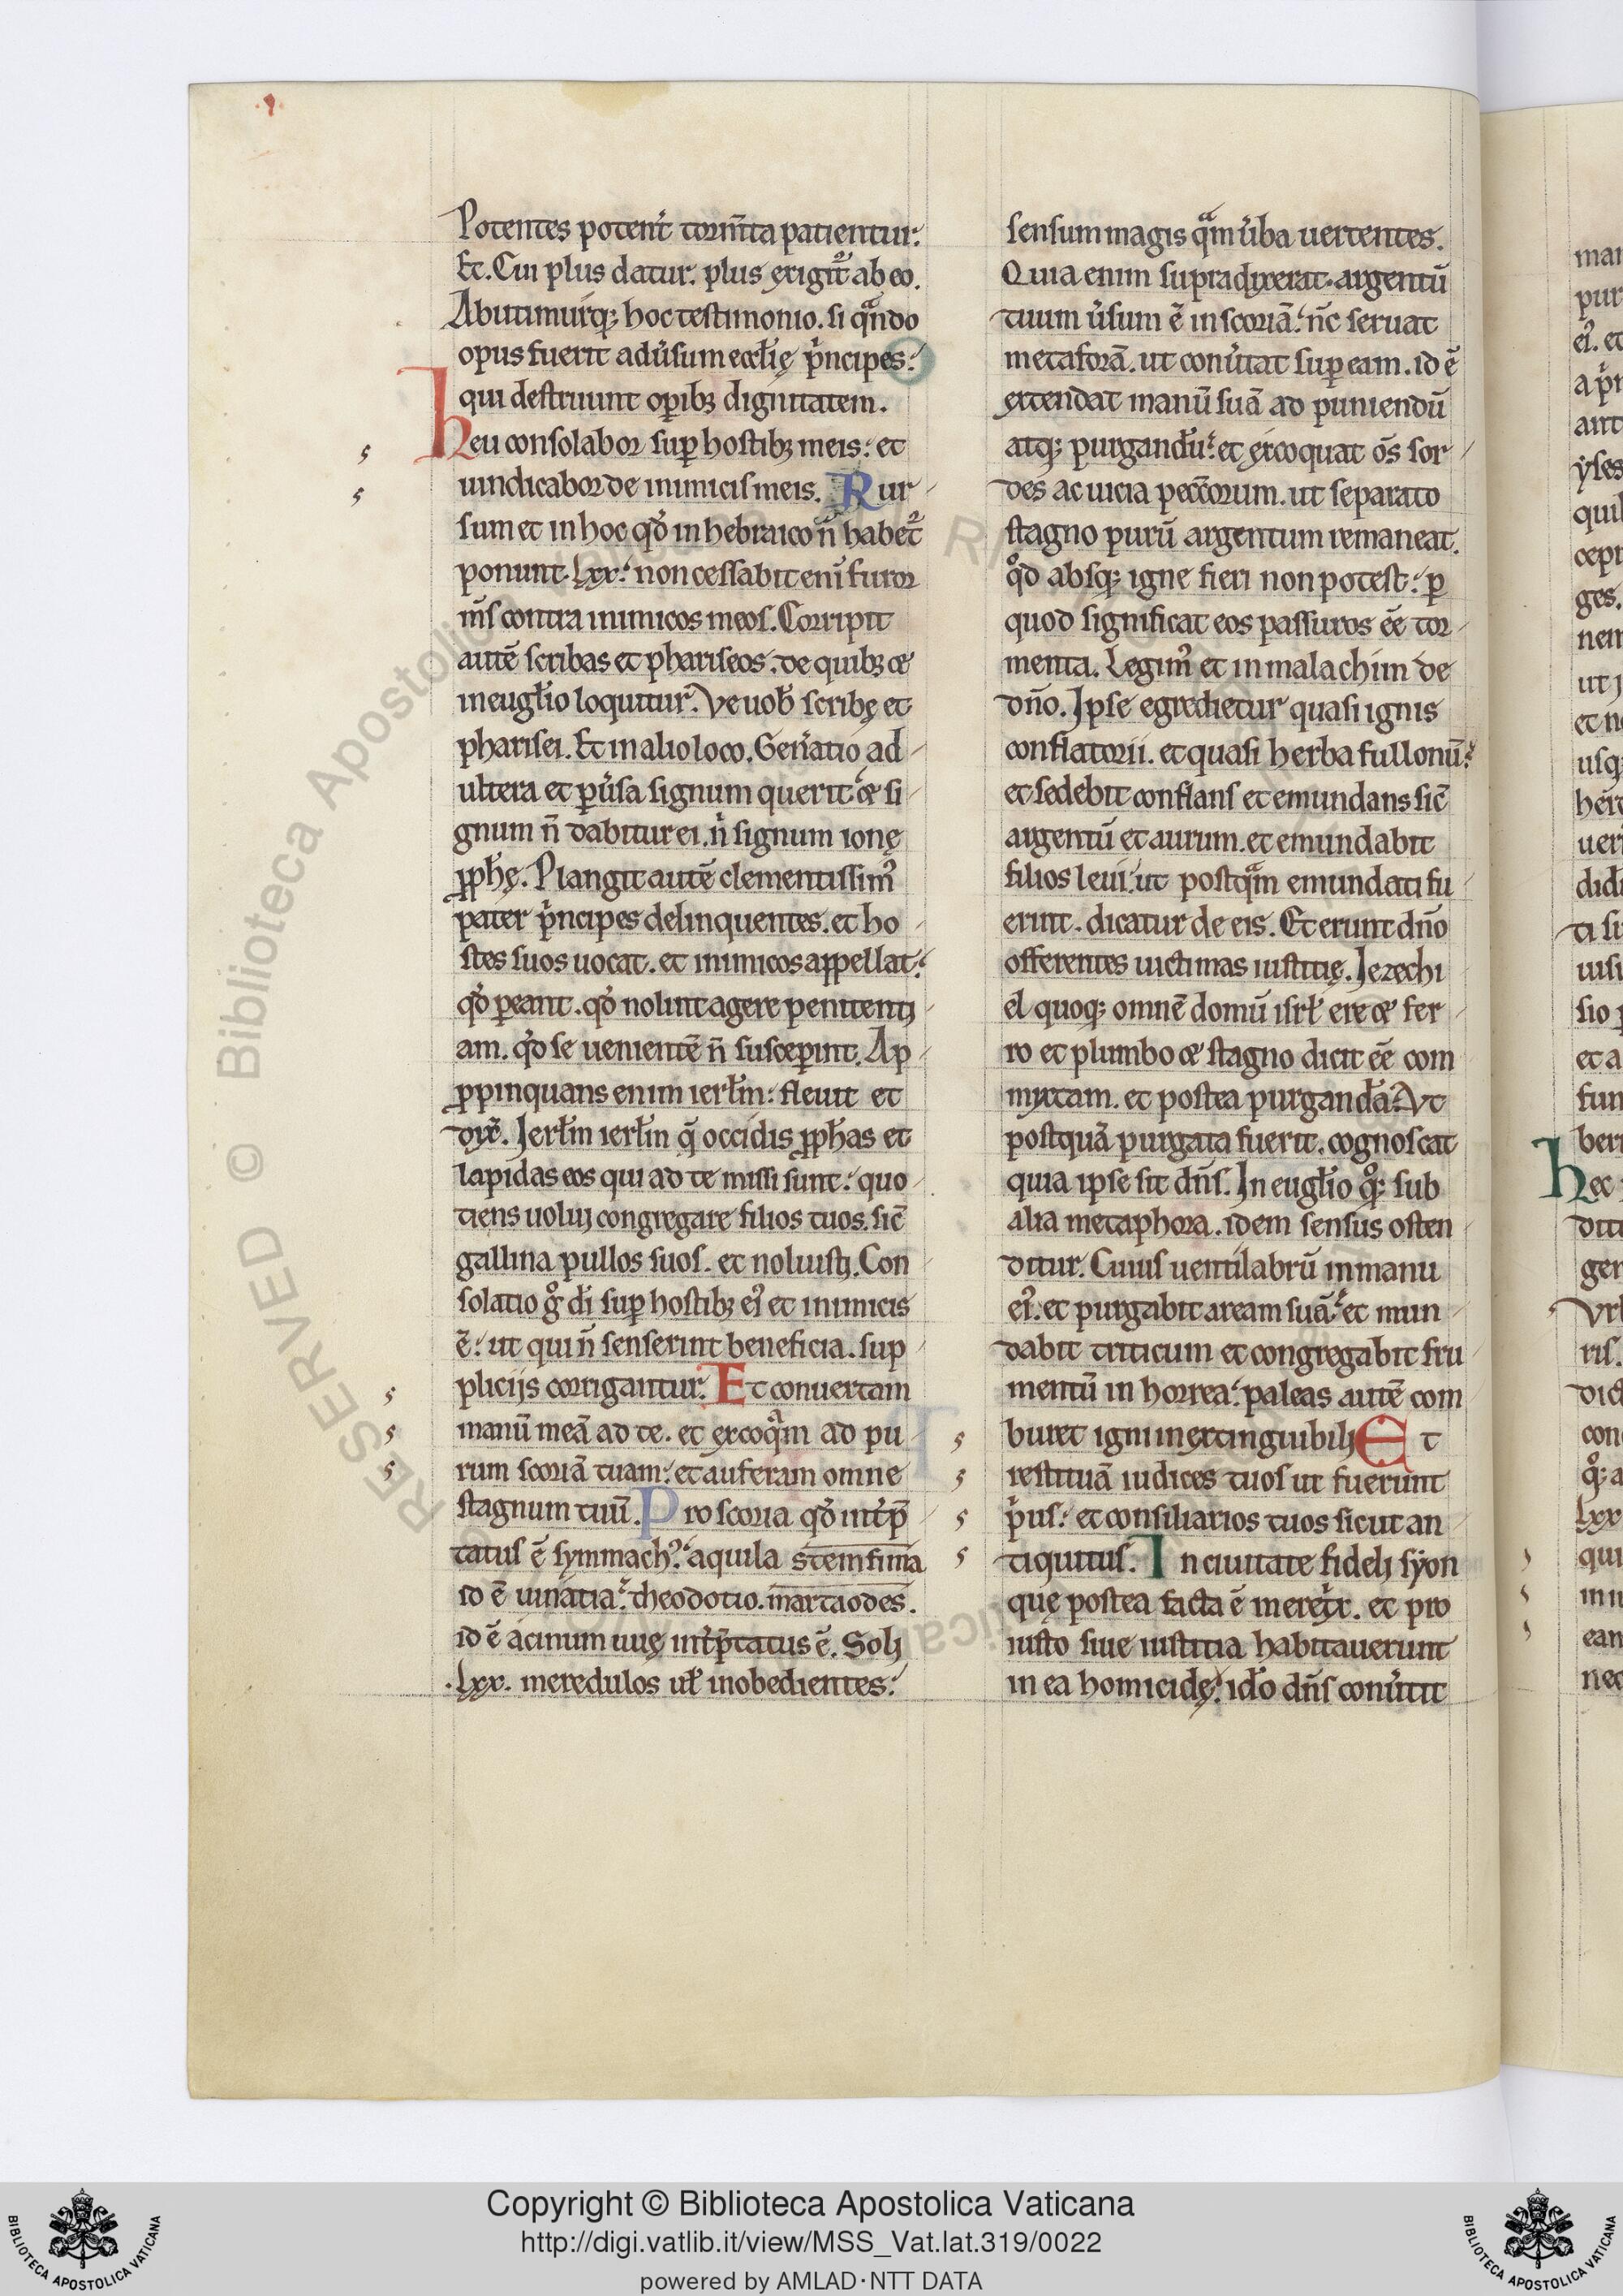 Potentes potent̄ torm̄ta patientur:
Et. Cui plus datur. plus exigit᷑ ab eo.
Abutimurq; hoc testimonio. si qͣndo
opus fuerit adu̾sum eccl̄ię p̾ncipes:
qui destruunt op̲ib; dignitatem.
heu consolabor sup̲ hostib; meis: et
uindicabor de inimicis meis. Rur
sum et in hoc qd̾ in hebraico n̄ habet᷑
ponunt. lxx. non cessabit eni̅ furor
m̄s contra inimicos meos. Corripit
autē scribas et phariseos. de quib; &
in eugl̄io loquitur. Ve uob̄ scribę et
pharisei. Et in alio loco. Gen̾atio ad
ultera et p̲u̾sa signum querit & si
gnum n̄ dabitur ei. n̾ signum ionę
ꝓph̄ę. Plangit autē clementissim᷒
pater p̾ncipes delinquentes. et ho
stes suos uocat. et inimicos appellat:
qd̾ p̲eant. qd̾ nolint agere penitenti
am. qd̾ se uenientē n̄ suscep̲int. Ap
ꝓpinquans enim ierl̄m: fleuit et
dix̄. Ierl̄m ierl̄m q̄ occidis ꝓph̄as et
lapidas eos qui ad te missi sunt: quo
tiens uolui congregare filios tuos. sic̄
gallina pullos suos. et noluisti. Con
solatio g̊ d̄i sup̲ hostib; ei᷒ et inimicis
ē: ut qui n̄ senserint beneficia. sup
pliciis corrigantur. Et conuertam
manū meā ad te. et excoqͣm ad pu
rum scoriā tuam: et auferam omne
stagnum tuū. Pro scoria qd̾ int̾p̄
tatus ē symmach᷒. aquila stemfima
id ē uinatia. theodotio. martaodes.
id ē acinum uuę int̾p̄tatus ē. Soli
.lxx. meredulos ul̄ inobedientes:
sensum magis qͣm u̾ba uertentes.
Quia enim supra dixerat. argentū
tuum u̾sum ē in scoriā. n̄c seruat
metaforā. ut conu̾tat sup̲ eam. id ē
extendat manū suā ad puniendū
atq; purgandū. et excoquat om̄s sor
des ac uicia pecc̄torum. ut separato
stagno purū argentum remaneat.
qd̊ absq; igne fieri non potest: p̲
quod significat eos passuros ēē tor
menta. Legim᷒ et in malachim de
dn̄o. Ipse egredietur quasi ignis
conflatorii. et quasi herba fullonū.
et sedebit conflans et emundans sic̄
argentū et aurum. et emundabit
filios leui. ut postqͣm emundati fu
erint. dicatur de eis. Et erunt dn̄o
offerentes uictimas iustitię. Iezechi
el quoq; omnē domū isrl̄ ere & fer
ro et plumbo & stagno dicit ēē com
mixtam. et postea purgandā. Vt
postquā purgata fuerit. cognoscat
quia ipse sit dn̄s. In eugl̄io q̊; sub
alia metaphora. idem sensus osten
ditur. Cuius uentilabrū in manu
ei᷒. et purgabit aream suā. et mun
dabit triticum et congregabit fru
mentū in horrea. paleas autē com
buret igni inextinguibili Et
restituā iudices tuos ut fuerunt
p̾us: et consiliarios tuos sicut an
tiquitus. In ciuitate fideli syon
quę postea facta ē meret̾x. et pro
iusto siue iustitia habitauerunt
in ea homicidę. id̄o dn̄s conu̾tit
RESERVED © Biblioteca Apostolica
Copyright © Biblioteca Apostolica Vaticana
http://digi.vatlib.it/view/MSS_Vat.lat.319/0022
powered by AMLAD·NTT DATA
BIBLIOTECA APOSTOLICA VATICANA
BIBLIOTECA APOSTOLICA VATICANA